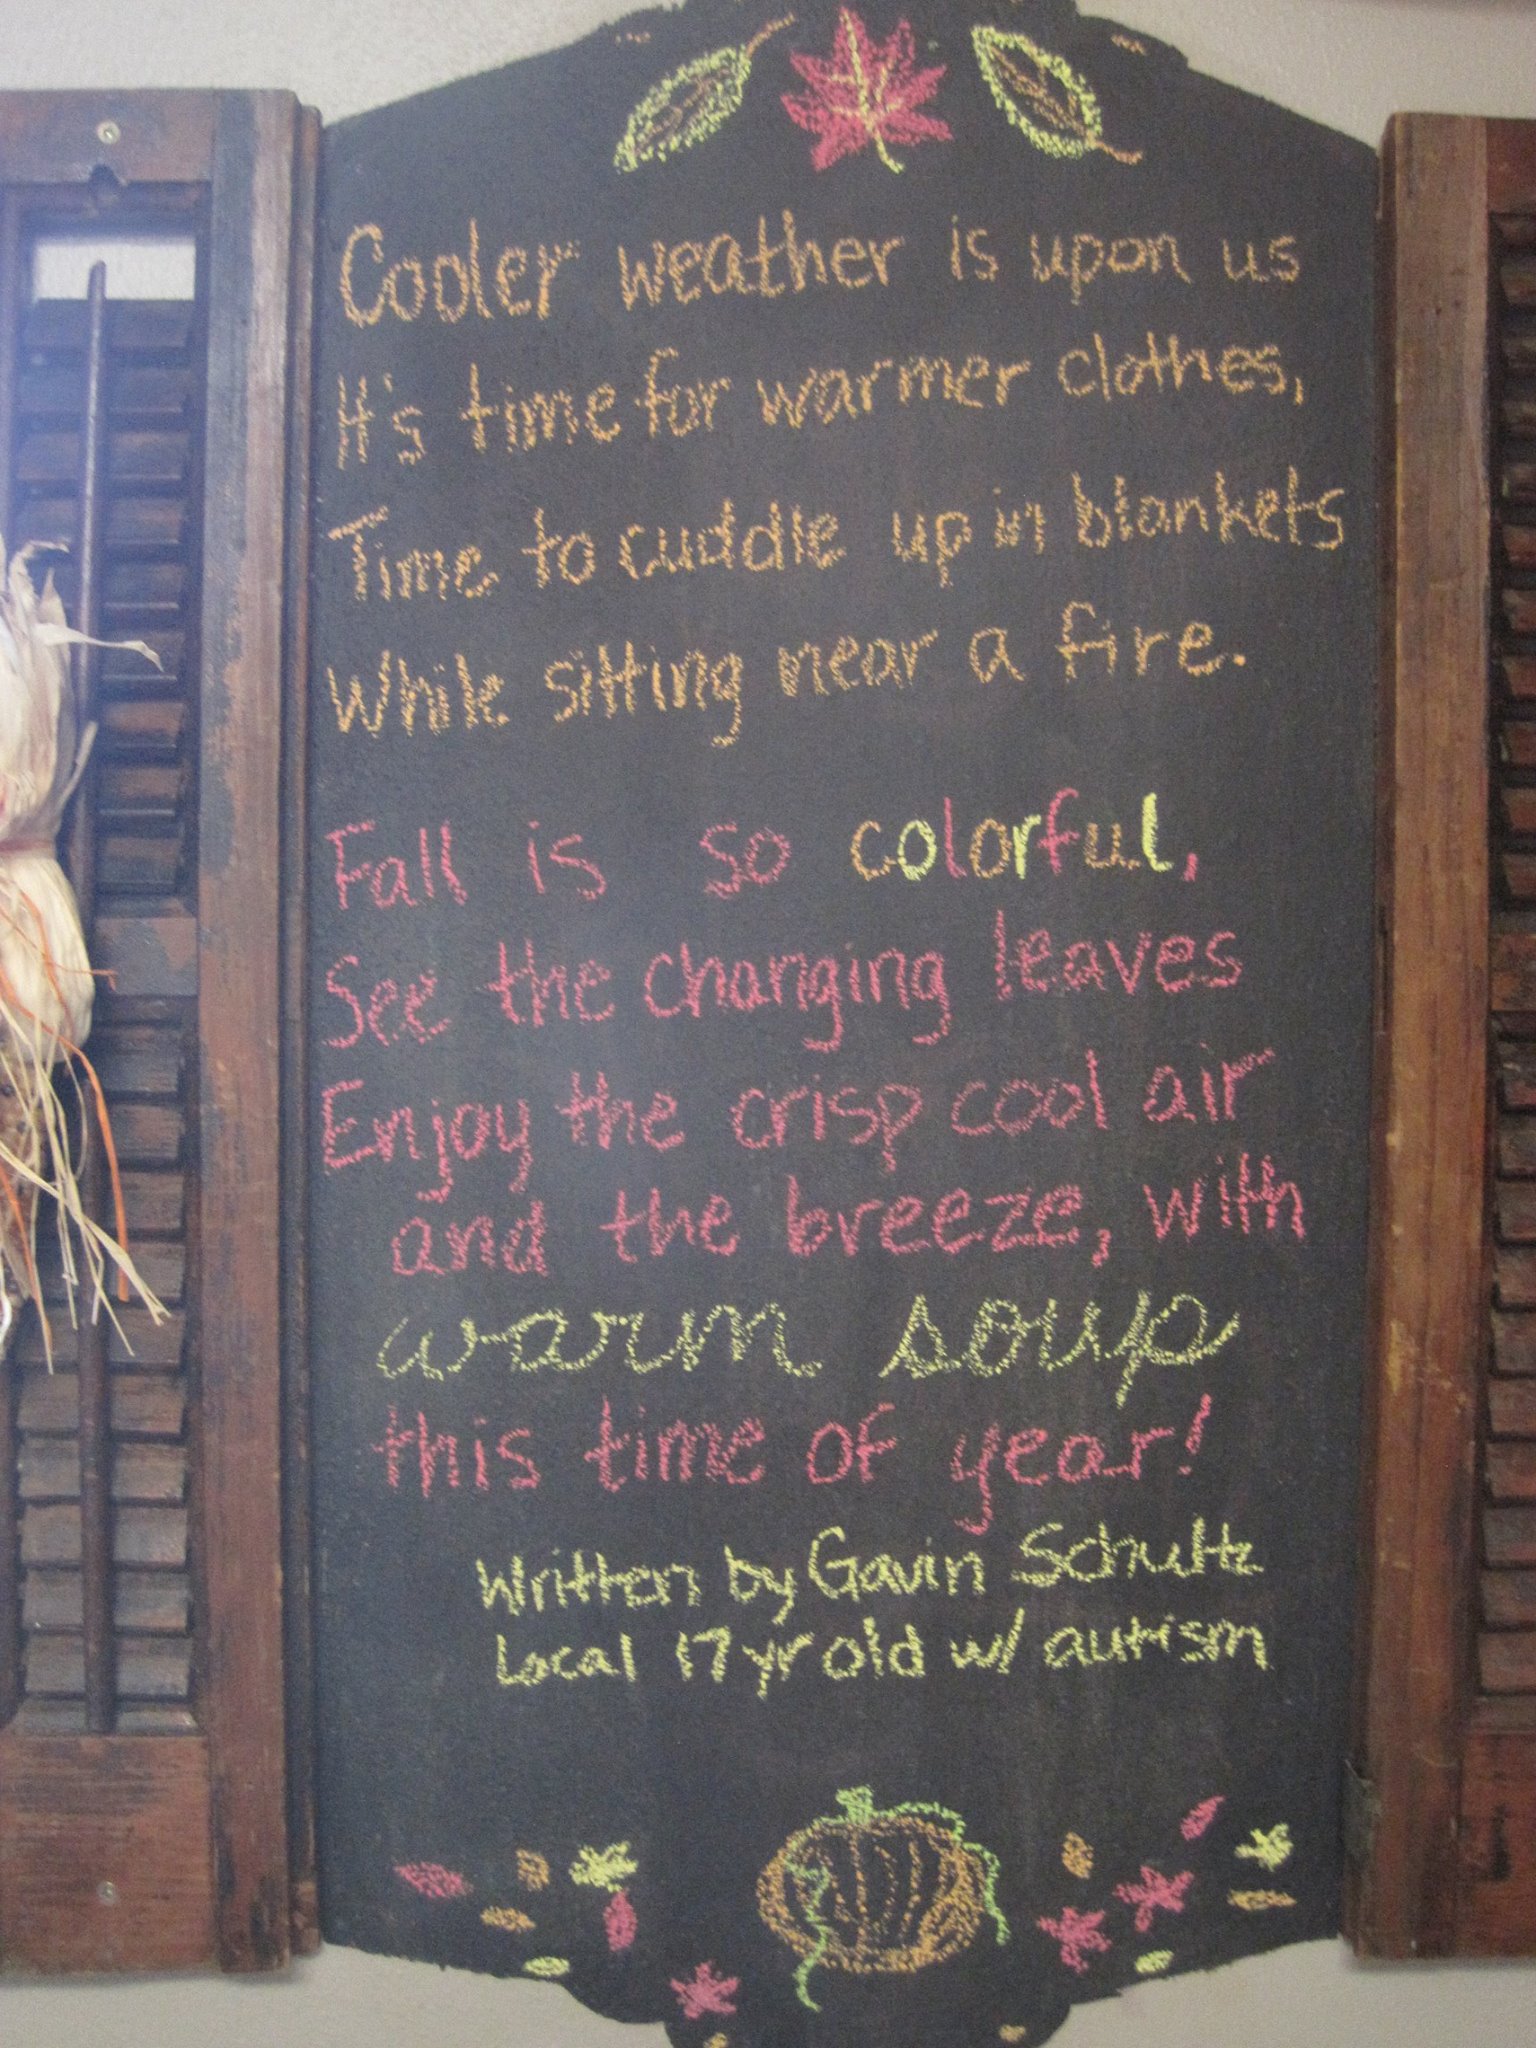 Cooler weather is upon us
It's time for warmer clothes,
Time to cuddle up in blankets
While sitting near a fire.
Fall is so colorful,
See the changing leaves
Enjoy the crisp cool air
and the breeze, with
warm soup
this time of year!
Written by Gavin Schultz
Local 17 yr old w/ autism